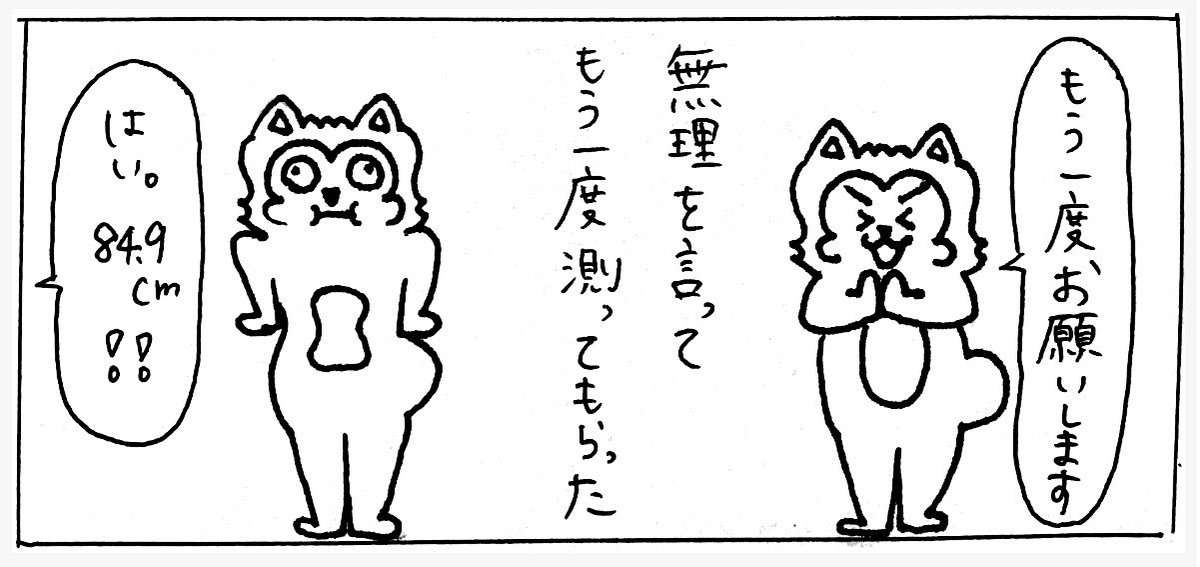 もう一度お願いします
無理を言って
もう一度測ってもらった
はい。
84.9
cm
!!